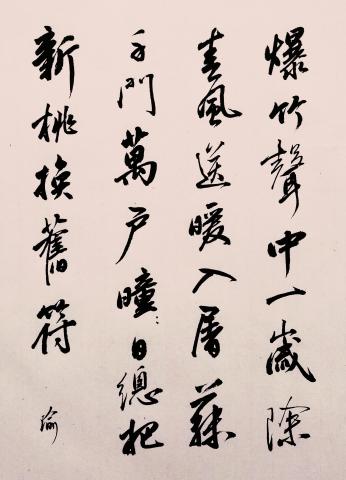 爆竹聲中一歲除
春風送暖入屠蘇
千門萬户曈〻日總把
新桃換舊符
瑜